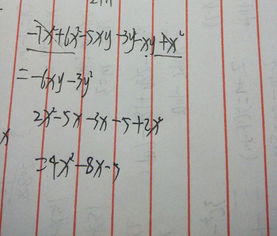 -7x²+6x²-5xy-3y²-xy+x²
=-6xy-3y²
2x²-5x-3x-5+2x²
=4x²-8x-5